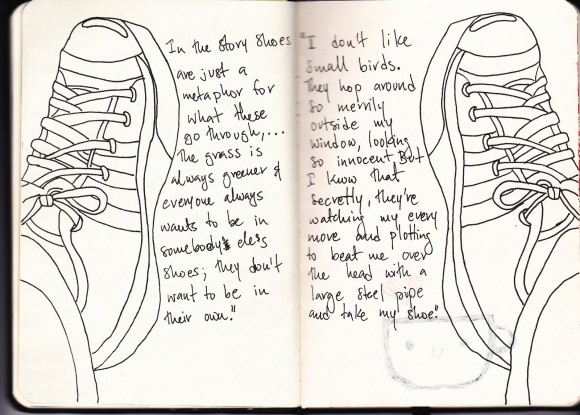 In the story shoes
are just a
metaphor for
what these
go through,...
The grass is
always greener &
everyone always
wants to be in
somebody's else's
shoes; they don't
want to be in
their own."
"I don't like
small birds.
They hop around
so merrily
outside my
window, looking
so innocent. But
I know that
secretly, they're
watching my every
move and plotting
to beat me over
the head with a
large steel pipe
and take my shoe."